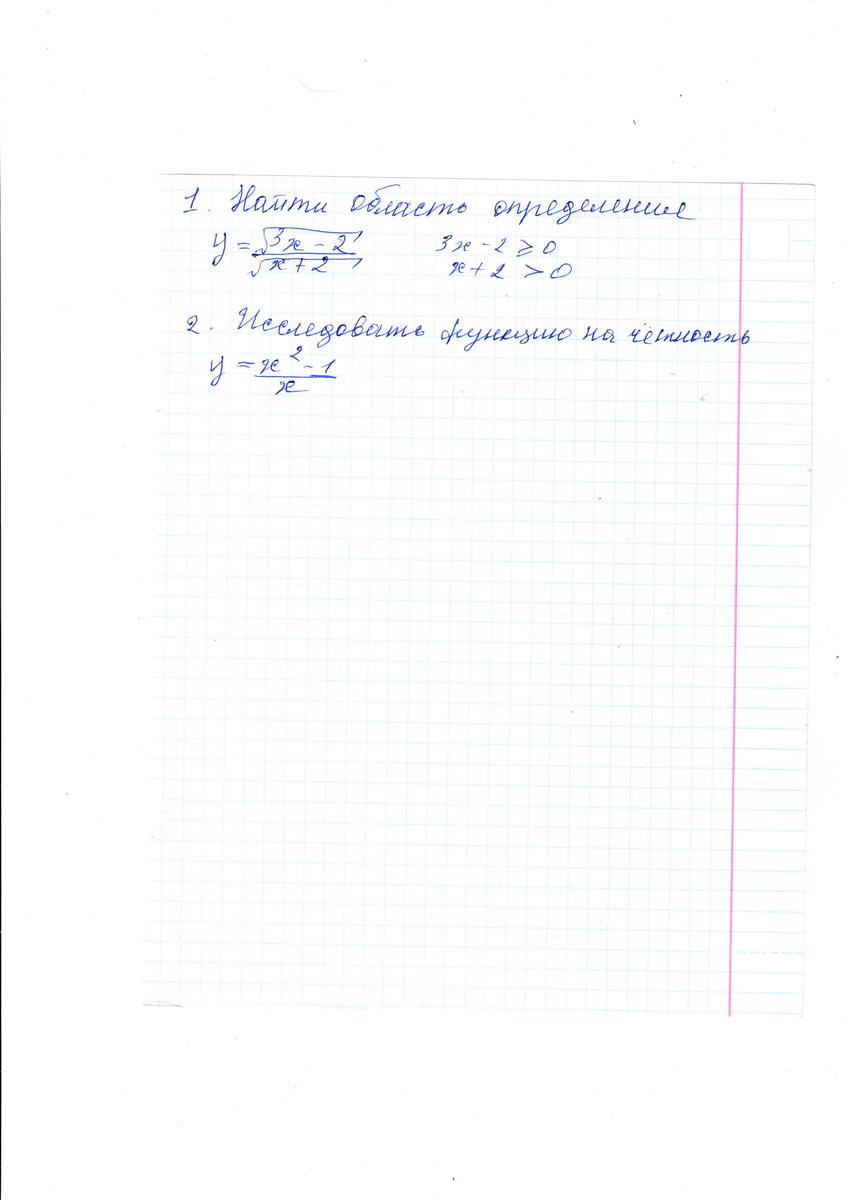 1. Найти область определения
y = √(3x - 2) / √(x + 2) 3x - 2 ≥ 0
x + 2 > 0
2. Исследовать функцию на чётность
y = (x² - 1) / x